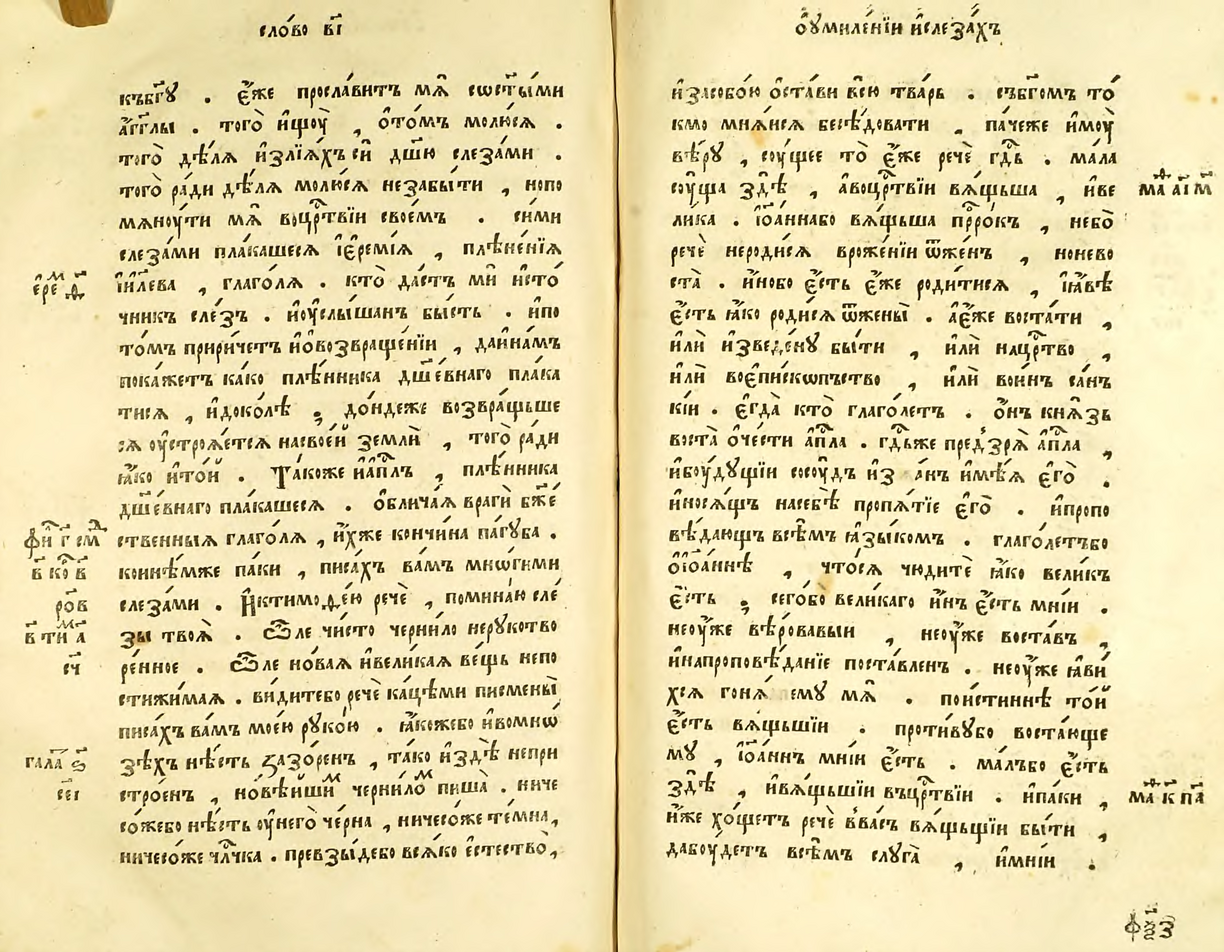 сло́во в҃і
къбг҃ꙋ . є҆́же просла́витъ мѧ̀ сост҃ы́ми
а҆́гг҃лы . того̀ и҆щꙋ̀ , ѻ҆то́мъ молю́сѧ .
того̀ дѣ́лѧ и҆злїѧ́хъ сѝ дш҃ю слеза́ми .
того̀ ра́ди дѣ́лѧ молю́сѧ незабы́ти , нопо
мѧнꙋ́ти мѧ̀ воцр҃твїи свое́мъ . си́ми
слеза́ми пла́кашесѧ і҆єремі́ѧ , плѣне́нїѧ
і҆и҃лева , глаго́лѧ . кто̀ да́стъ мѝ и҆сто́
чникъ сле́зъ . и҆ᲂу҆слы́шанъ бы́сть . и҆по
то́мъ прири́четъ и҆ѡвозвраще́нїи , да́и҆на́мъ
пока́жетъ ка́ко плѣ́нника дш҃е́внаго пла́ка
тисѧ , и҆доко́лѣ ; до́ндеже возвра́щьше
сѧ ᲂу҆строѧ́етсѧ насвое́й землѝ , того̀ ра́ди
ꙗ҆́ко и҆то́й . Та́коже и҆а҆п҃лъ , плѣ́нника
дш҃е́внаго пла́кашесѧ . ѻ҆блича́ѧ врагѝ бж҃е́
ственныѧ глаго́лѧ , и҆́хже кончи́на па́гꙋба .
кони́ѣмже па́ки , писа́хъ ва́мъ мнѡ́гими
слеза́ми . И҆ктимоѳе́ю речѐ , помина́ю сле́
зы твоѧ̀ . Ѽле чи́сто черни́ло нерꙋкотво
ре́нное . Ѽле но́ваѧ и҆вели́каѧ ве́щь непо
стижи́маѧ . ви́дитебо речѐ каце́ми писмены̀
писа́хъ ва́мъ мое́ю рꙋко́ю . ꙗ҆́коже́бо и҆во́мнѡ
зѣхъ нѣ́сть зазо́ренъ , та́ко и҆здѣ̀ непри
стро́енъ , новѣ́йшим черни́лом пиша̀ . ниче
со́жебо нѣ́сть ᲂу҆него̀ че́рна , ничесо́же те́мна ,
ничесо́же чл҃чка . превзы́дебо всѧ́ко є҆стество̀ ,
ере д҃
фи г҃ ем
в҃ ко в҃
ро́в
в҃ ти а
сч
гала ѕ҃
сеі
ᲂу҆миле́нїи и҆слеза́хъ
и҆засобо́ю ѻ҆ста́ви всю̀ тва́рь . събг҃омъ то́
кмо мнѧ́исѧ бесѣ́довати . па́чеже и҆мꙋ́й
вѣ́рꙋ , сꙋ́щее то̀ є҆́же речѐ гд҃ь . ма́ла
сꙋ́ща здѣ̀ , авоцр҃твїи вѧ́щьша , и҆ве
ли́ка . і҆ѡа́ннабо вѧ́щьша прⷪ҇ро́къ , небо̀
речѐ неродисѧ вроже́нїи ѿже́нъ , нонево
ста̀ . и҆но́бо є҆́сть є҆́же роди́тисѧ , і҆ꙗ҆́вѣ
є҆́сть ꙗ҆́ко роди́сѧ ѿжены̀ . ає҆́же воста́ти ,
и҆лѝ и҆зведе́нꙋ бы́ти , и҆лѝ нацр҃тво ,
и҆лѝ воє҆пи́скопьство , и҆лѝ во́инъ са́нъ
кїи . є҆гда̀ кто̀ глаго́летъ . ѻ҆́нъ кнѧ́зь
воста̀ ѻ҆че́сти а҆п҃ла . гд҃ьже пред̾зрѧ̀ а҆п҃ла ,
и҆бꙋ́дꙋщїи сосꙋ́дъ и҆з анъ и҆мѣ́ѧ є҆го̀ .
и҆но́сѧщъ насебѣ̀ пропѧ́тїе є҆го̀ . и҆пропо
вѣ́дающъ всѣ́мъ ꙗ҆зы́комъ . глаго́летъбо
ѻ҆і҆ѡа́ннѣ , что́сѧ чюдитѐ ꙗ҆́ко вели́къ
є҆́сть ; сего́бо вели́каго и҆́нъ є҆́сть мні́и .
неᲂу҆́же вѣ́ровавыи , неᲂу҆́же воста́въ ,
и҆напроповѣ́данїе поста́вленъ . неᲂу҆́же ꙗ҆ви́
хсѧ гонѧ́ емꙋ мѧ̀ . пои́стиннѣ то́й
є҆́сть вѧ́щьшїи . проти́вꙋбо воста́юще
мꙋ̀ , і҆ѡа́ннъ мні́и є҆́сть . ма́лъбо є҆́сть
здѣ̀ , и҆вѧ́щьшїи въцр҃твїи . и҆па́ки ,
и҆́же хо́щетъ речѐ в̾ва́съ вѧ́щьшїи бы́ти ,
дабꙋ́детъ всѣ́мъ слꙋга̀ , и҆мні́и .
маѳ а҃і м҃
маѳ к҃ п҃а
ф҃ѯз